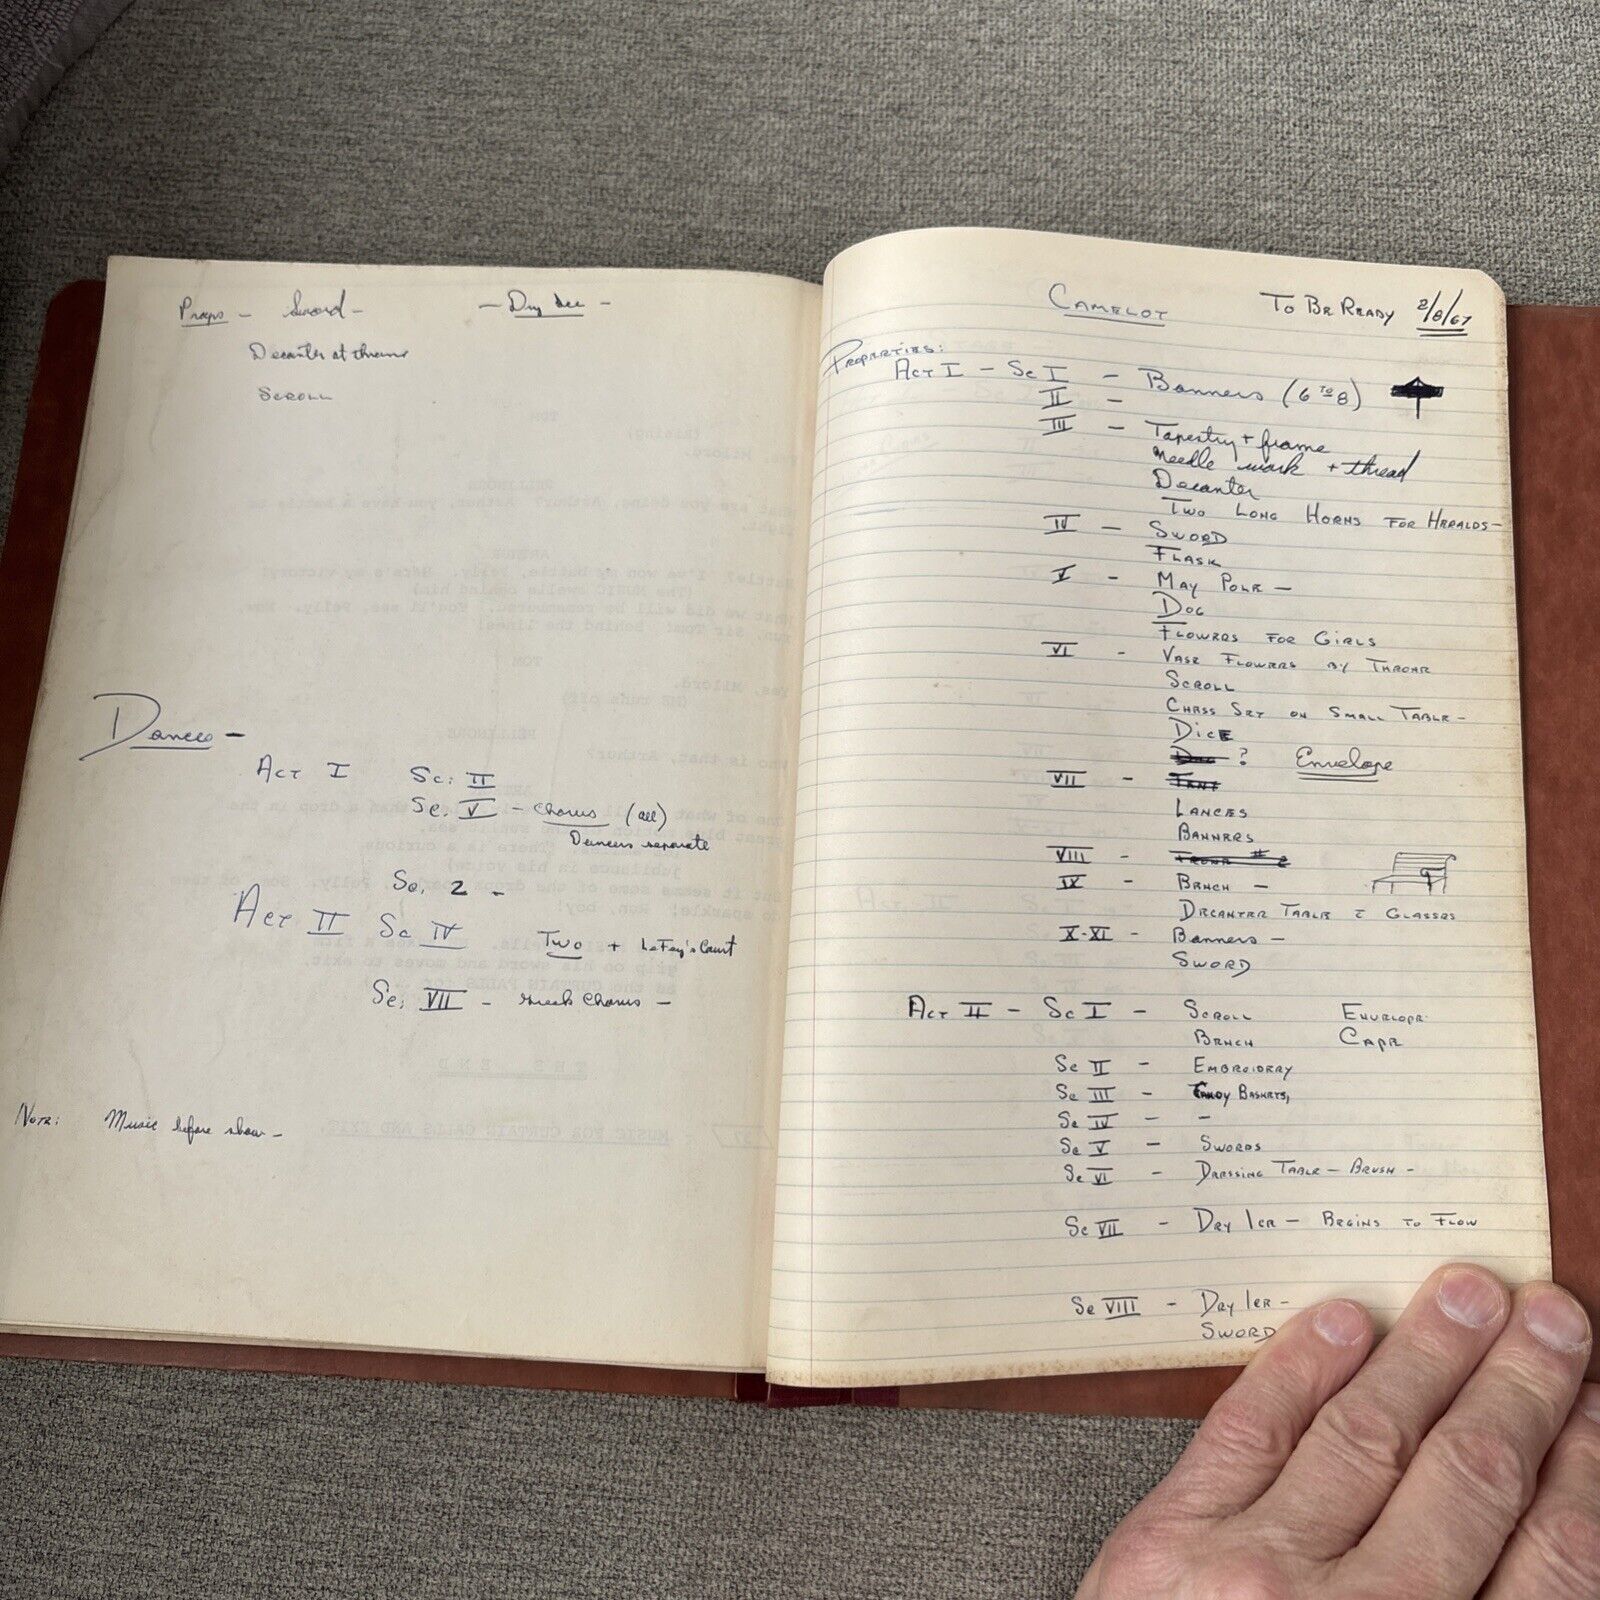 Props - Sword - - Dry Ice -
Decanter at throne
SCROLL
Dances -
ACT I Sc. II
Sc. V - Chorus (all)
Dancers separate
Sc. 2 -
ACT II Sc IV Two + LeFey's Court
Sc. VII - Greek Chorus -
NOTE: Music before show -
CAMELOT TO BE READY 2/8/67
PROPERTIES:
ACT I - Sc I - Banners (6 TO 8)
II -
III - Tapestry + frame
Needle work + thread
Decanter
TWO LONG HORNS FOR HERALDS -
IV - SWORD
FLASK
V - MAY POLE -
DOG
FLOWERS FOR GIRLS
VI - VASE FLOWERS BY THRONE
SCROLL
CHESS SET ON SMALL TABLE -
DICE
DOG ? Envelope
VII - TENT
LANCES
BANNERS
VIII - # 2
IX - BENCH -
DECANTER TABLE & GLASSES
X-XI - Banners -
SWORD
ACT II - Sc I - SCROLL ENVELOPE
BENCH CAPE
Sc II - EMBROIDERY
Sc III - CANDY BASKETS,
Sc IV - -
Sc V - SWORDS
Sc VI - DRESSING TABLE - BRUSH -
Sc VII - DRY ICE - BEGINS TO FLOW
Sc VIII - DRY ICE -
SWORD